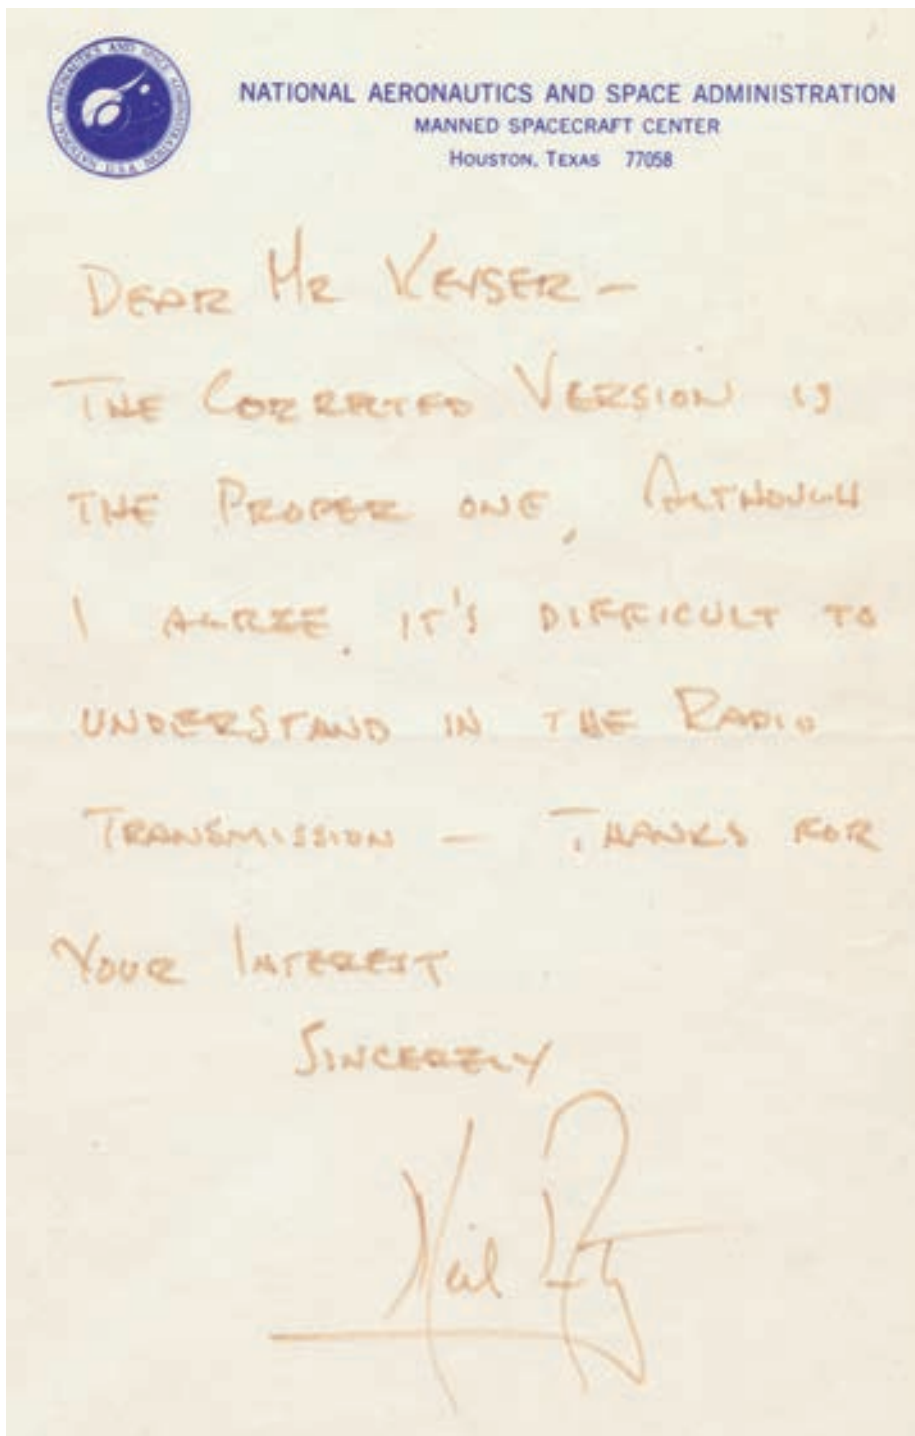 NATIONAL AERONAUTICS AND SPACE ADMINISTRATION
NATIONAL AERONAUTICS AND SPACE ADMINISTRATION
U.S.A.
MANNED SPACECRAFT CENTER
HOUSTON, TEXAS 77058
DEAR MR KEYSER -
THE CORRECTED VERSION IS
THE PROPER ONE. ALTHOUGH
I AGREE, IT'S DIFFICULT TO
UNDERSTAND IN THE RADIO
TRANSMISSION - THANKS FOR
YOUR INTEREST
SINCERELY
Neil